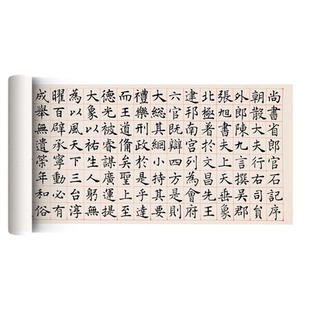 尚書省郎官石記序
朝散大夫行右司員
外郎陳九言撰吳郡
張旭書夫上天垂象
北極著於文昌先王
建邦南宮列為會府
六官既辯四方是則
大總其綱小持其要
禮樂刑政於是乎達
而王道備矣聖上至
德光被睿謀廣運提
大象以祐生人躬無
為以風天下三台淳
曜百辟承寧動必有
成舉無遺策年和俗